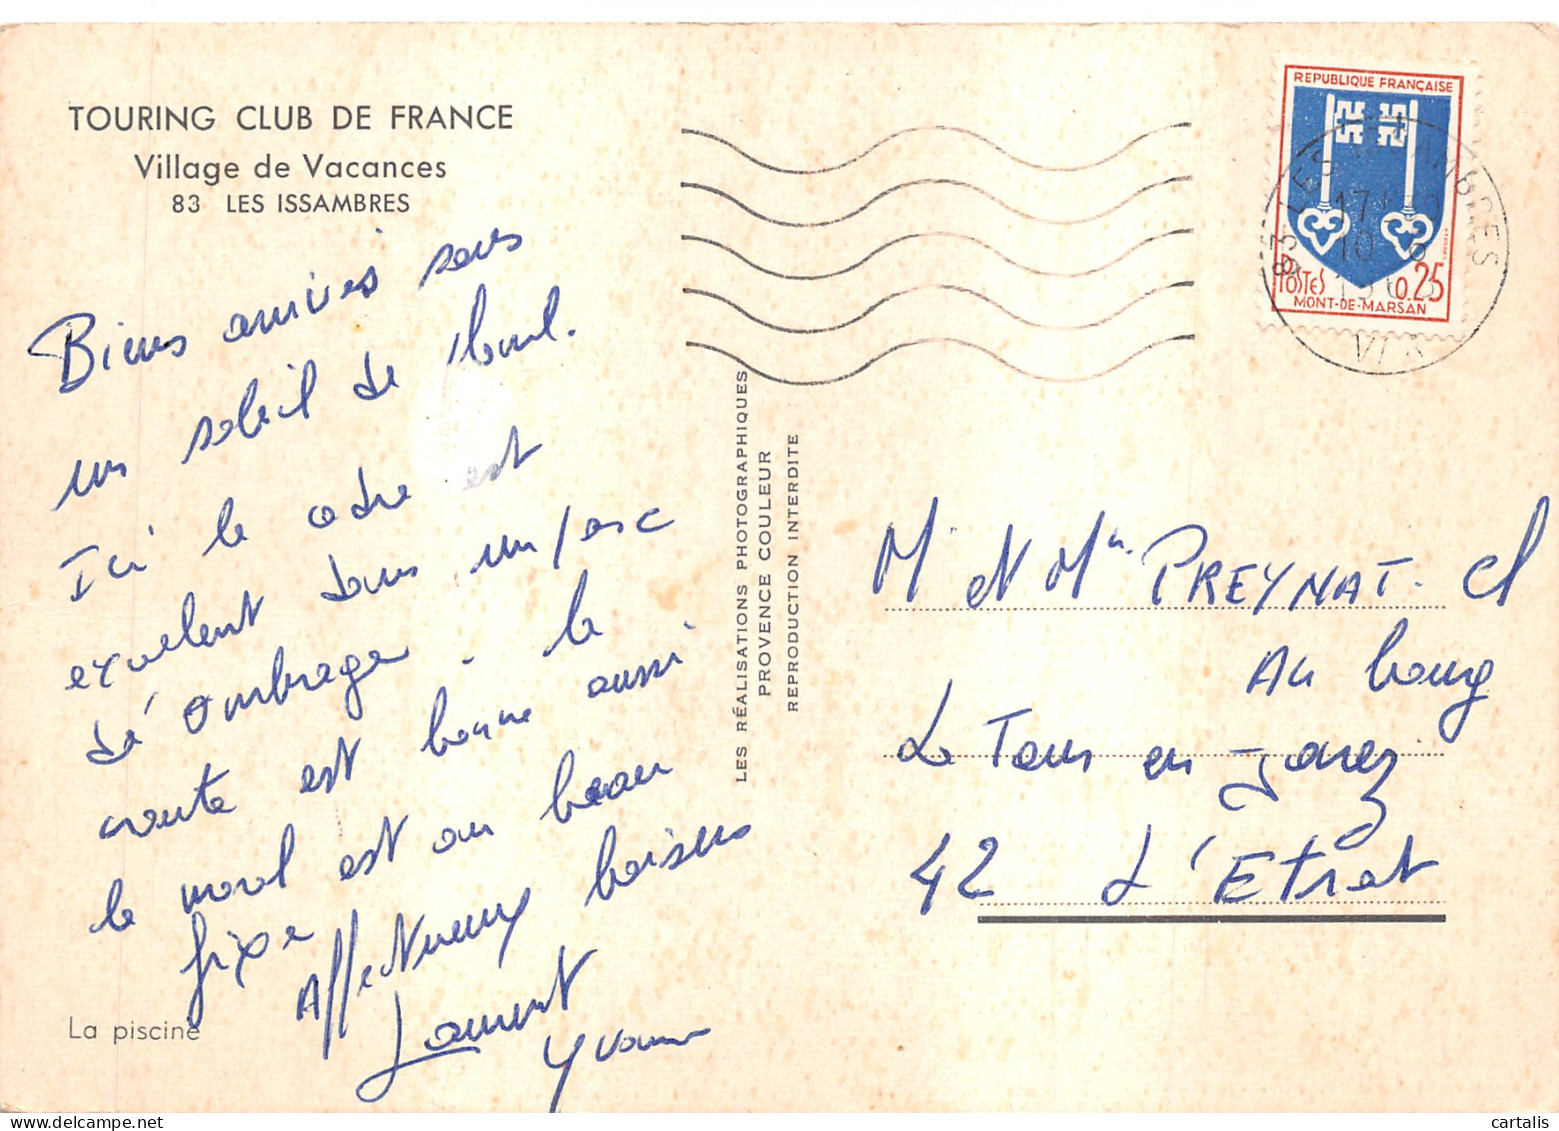 TOURING CLUB DE FRANCE
Village de Vacances
83 LES ISSAMBRES
Biens arrivés sous
un soleil de plomb.
Ici le cadre est
excellent dans un parc
d'ombrage. la
route est bonne aussi
le moral est au beau
fixe
Affectueux baisers
Laurent
Yvonne
La piscine
LES RÉALISATIONS PHOTOGRAPHIQUES
PROVENCE COULEUR
REPRODUCTION INTERDITE
REPUBLIQUE FRANÇAISE
POSTES 0,25
MONT-DE-MARSAN
83 LES ISSAMBRES
VAR
Mr et Mme PREYNAT. Cl
Au bourg
La Tour en Jarez
42 L'Etrat
cartalis